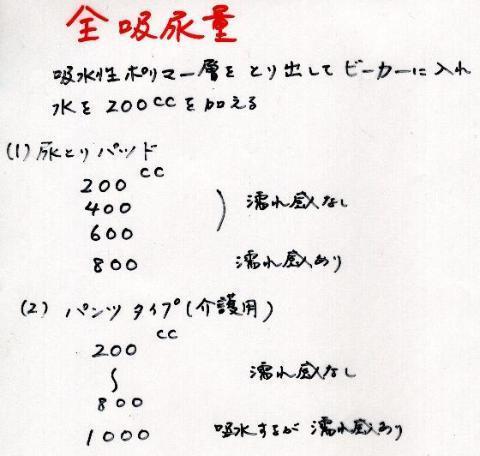 全吸尿量
吸水性ポリマー層をとり出してビーカーに入れ
水を200ccを加える
(1)尿とりパッド
200cc
400
600
濡れ感なし
800 濡れ感あり
(2) パンツタイプ(介護用)
200cc
〜
800
濡れ感なし
1000 吸水するが濡れ感あり